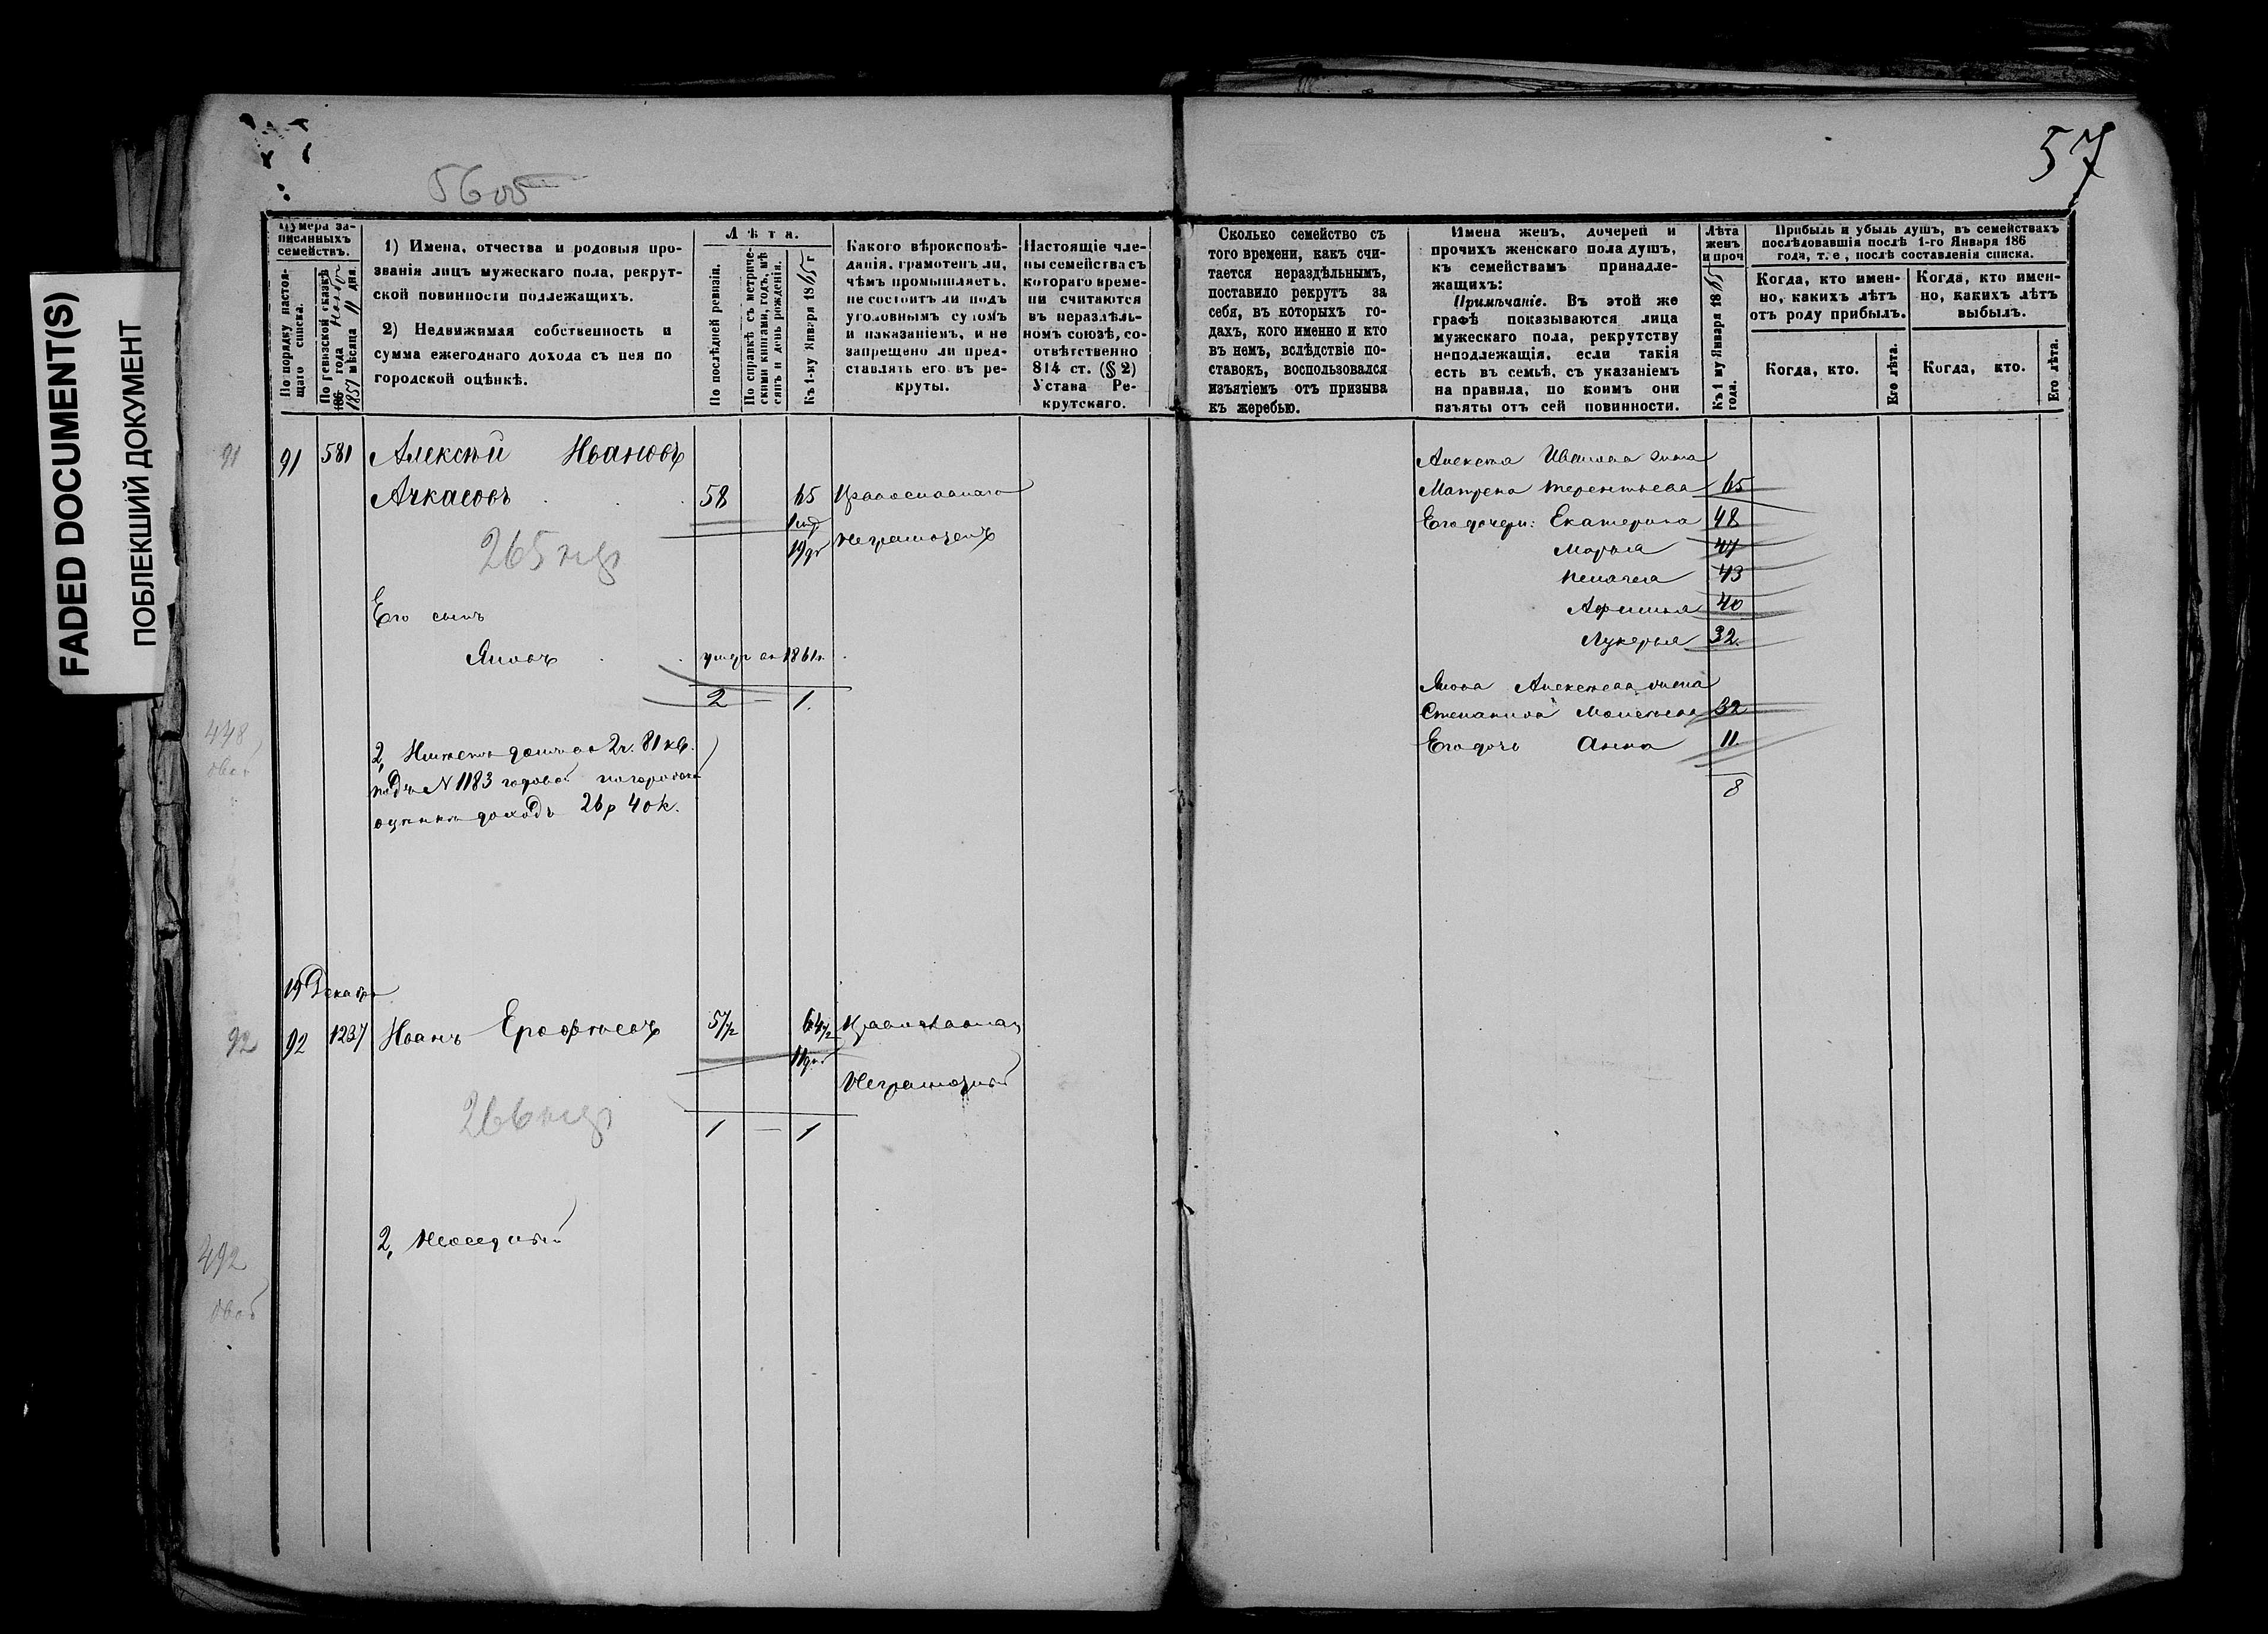 FADED DOCUMENT(S)
ПОБЛЕКШИЙ ДОКУМЕНТ
57
Нумера за-
писанныхъ
семействъ.
По порядку настоя-
щаго списка.
По ревизской сказкѣ
186 года
1857 мѣсяца 11 дня
1) Имена, отчества и родовыя про-
званія лицъ мужескаго пола, рекрут-
ской повинности подлежащихъ.
2) Недвижимая собственность и
сумма ежегоднаго дохода съ нея по
городской оцѣнкѣ.
Лѣта.
По послѣдней ревизіи.
По справкѣ съ метриче-
скими книгами, годъ, мѣ
сяцъ и день рожденія.
Къ 1-му Января 1865 г
Какого вѣроисповѣ-
данія, грамотенъ ли,
чѣмъ промышляетъ,
не состоитъ ли подъ
уголовнымъ судомъ
и наказаніемъ, и не
запрещено ли пред-
ставлять его въ ре-
круты.
Настоящіе чле-
ны семейства съ
котораго време-
ни считаются
въ нераздѣль-
номъ союзѣ, со-
отвѣтственно
814 ст. (§ 2)
Устава Ре-
крутскаго.
Сколько семейство съ
того времени, какъ счи-
тается нераздѣльнымъ,
поставило рекрутъ за
себя, въ которыхъ го-
дахъ, кого именно и кто
въ немъ, вслѣдствіе по-
ставокъ, воспользовался
изъятіемъ отъ призыва
къ жеребью.
Имена женъ, дочерей и
прочихъ женскаго пола душъ,
къ семействамъ принадле-
жащихъ:
Примѣчаніе. Въ этой же
графѣ показываются лица
мужескаго пола, рекрутству
неподлежащія, если такія
есть въ семьѣ, съ указаніемъ
на правила, по коимъ они
изъяты отъ сей повинности.
Лѣта
женъ
и проч
Къ 1 му Января 1865
года.
Прибыль и убыль душъ, въ семействахъ
послѣдовавшія послѣ 1-го Января 186
года, т. е., послѣ составленія списка.
Когда, кто имен-
но, какихъ лѣтъ
отъ роду прибылъ.
Когда, кто имен-
но, какихъ лѣтъ
выбылъ.
Когда, кто.
Его лѣта.
Когда, кто.
Его лѣта.
91 91 581 Алексѣй Ивановъ
Ачкасовъ 58 65 Православнаго
Неграмотенъ
265
Его сынъ
Яковъ 1861
2 — 1.
448
2, Имѣетъ домъ въ 2ч. 81 кв.
подъ № 1183 годовой по городской
оцѣнкѣ доходъ 26 р 40 к.
19 Декабря
92 92 1237 Иванъ Ерофѣевъ 57½ 64½
Неграмотный
266
1 — 1
492
2, Неоседлый
Алексѣя Иванова жена
Матрена Терентьева 65
Его дочери: Екатерина 48
Марья 47
Пелагея 43
Афимья 40
Лукерья 32.
Якова Алексѣева жена
Степанида Моисеева 32
Его дочь Анна 11.
8